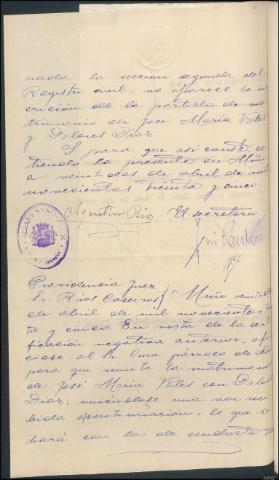 nada la seccion segunda del
Registro civil, no aparece la ins
cripción de la partida de ma
trimonio de José María Vales
y Dolores Diaz.
Y para que asi conste, ex
tiendo la presente en Miño
a veintidos de abril de mil
novecientos treinta y cinco.
Agustin Rios El secretario
José
Providencia Juez
Sr. Rios Caseros / Miño veinti
de abril de mil novecientos
ta y cinco En vista de la cer
tificación negativa anterior, ofi
ciese al Sr Cura párroco de
para que remita la matrimonial
de José María Vales con Dolores
Diaz, uniéndose una vez reci
bida a continuación, lo que
hará con la de conducta